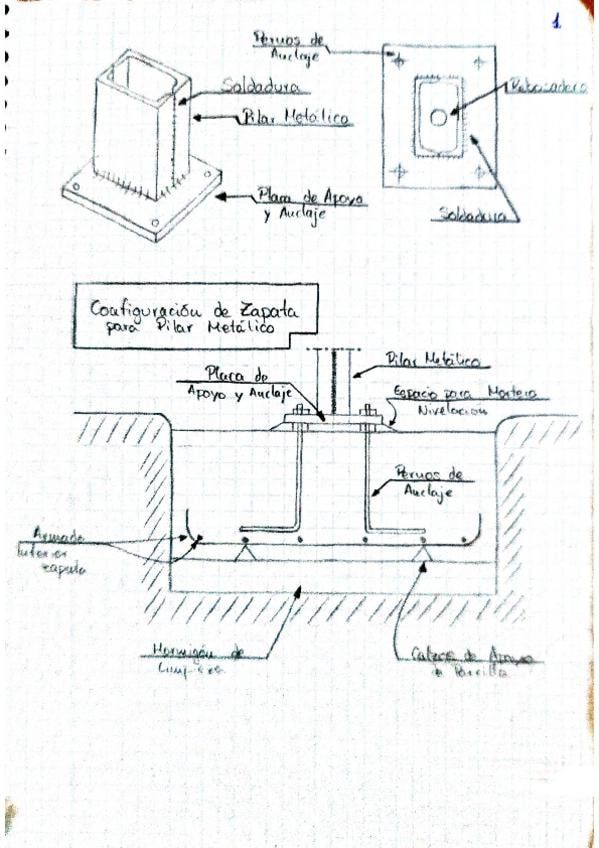 1
Pernos de
Anclaje
Soldadura
Pilar Metálico
Placa de Apoyo
y Anclaje
Rebosadero
Soldadura
Configuración de Zapata
para Pilar Metálico
Placa de
Apoyo y Anclaje
Pilar Metálico
Espacio para Mortero
Nivelación
Pernos de
Anclaje
Armado
Inferior
zapata
Hormigón de
Limpieza
Calzos de Apoyo
de Parrilla